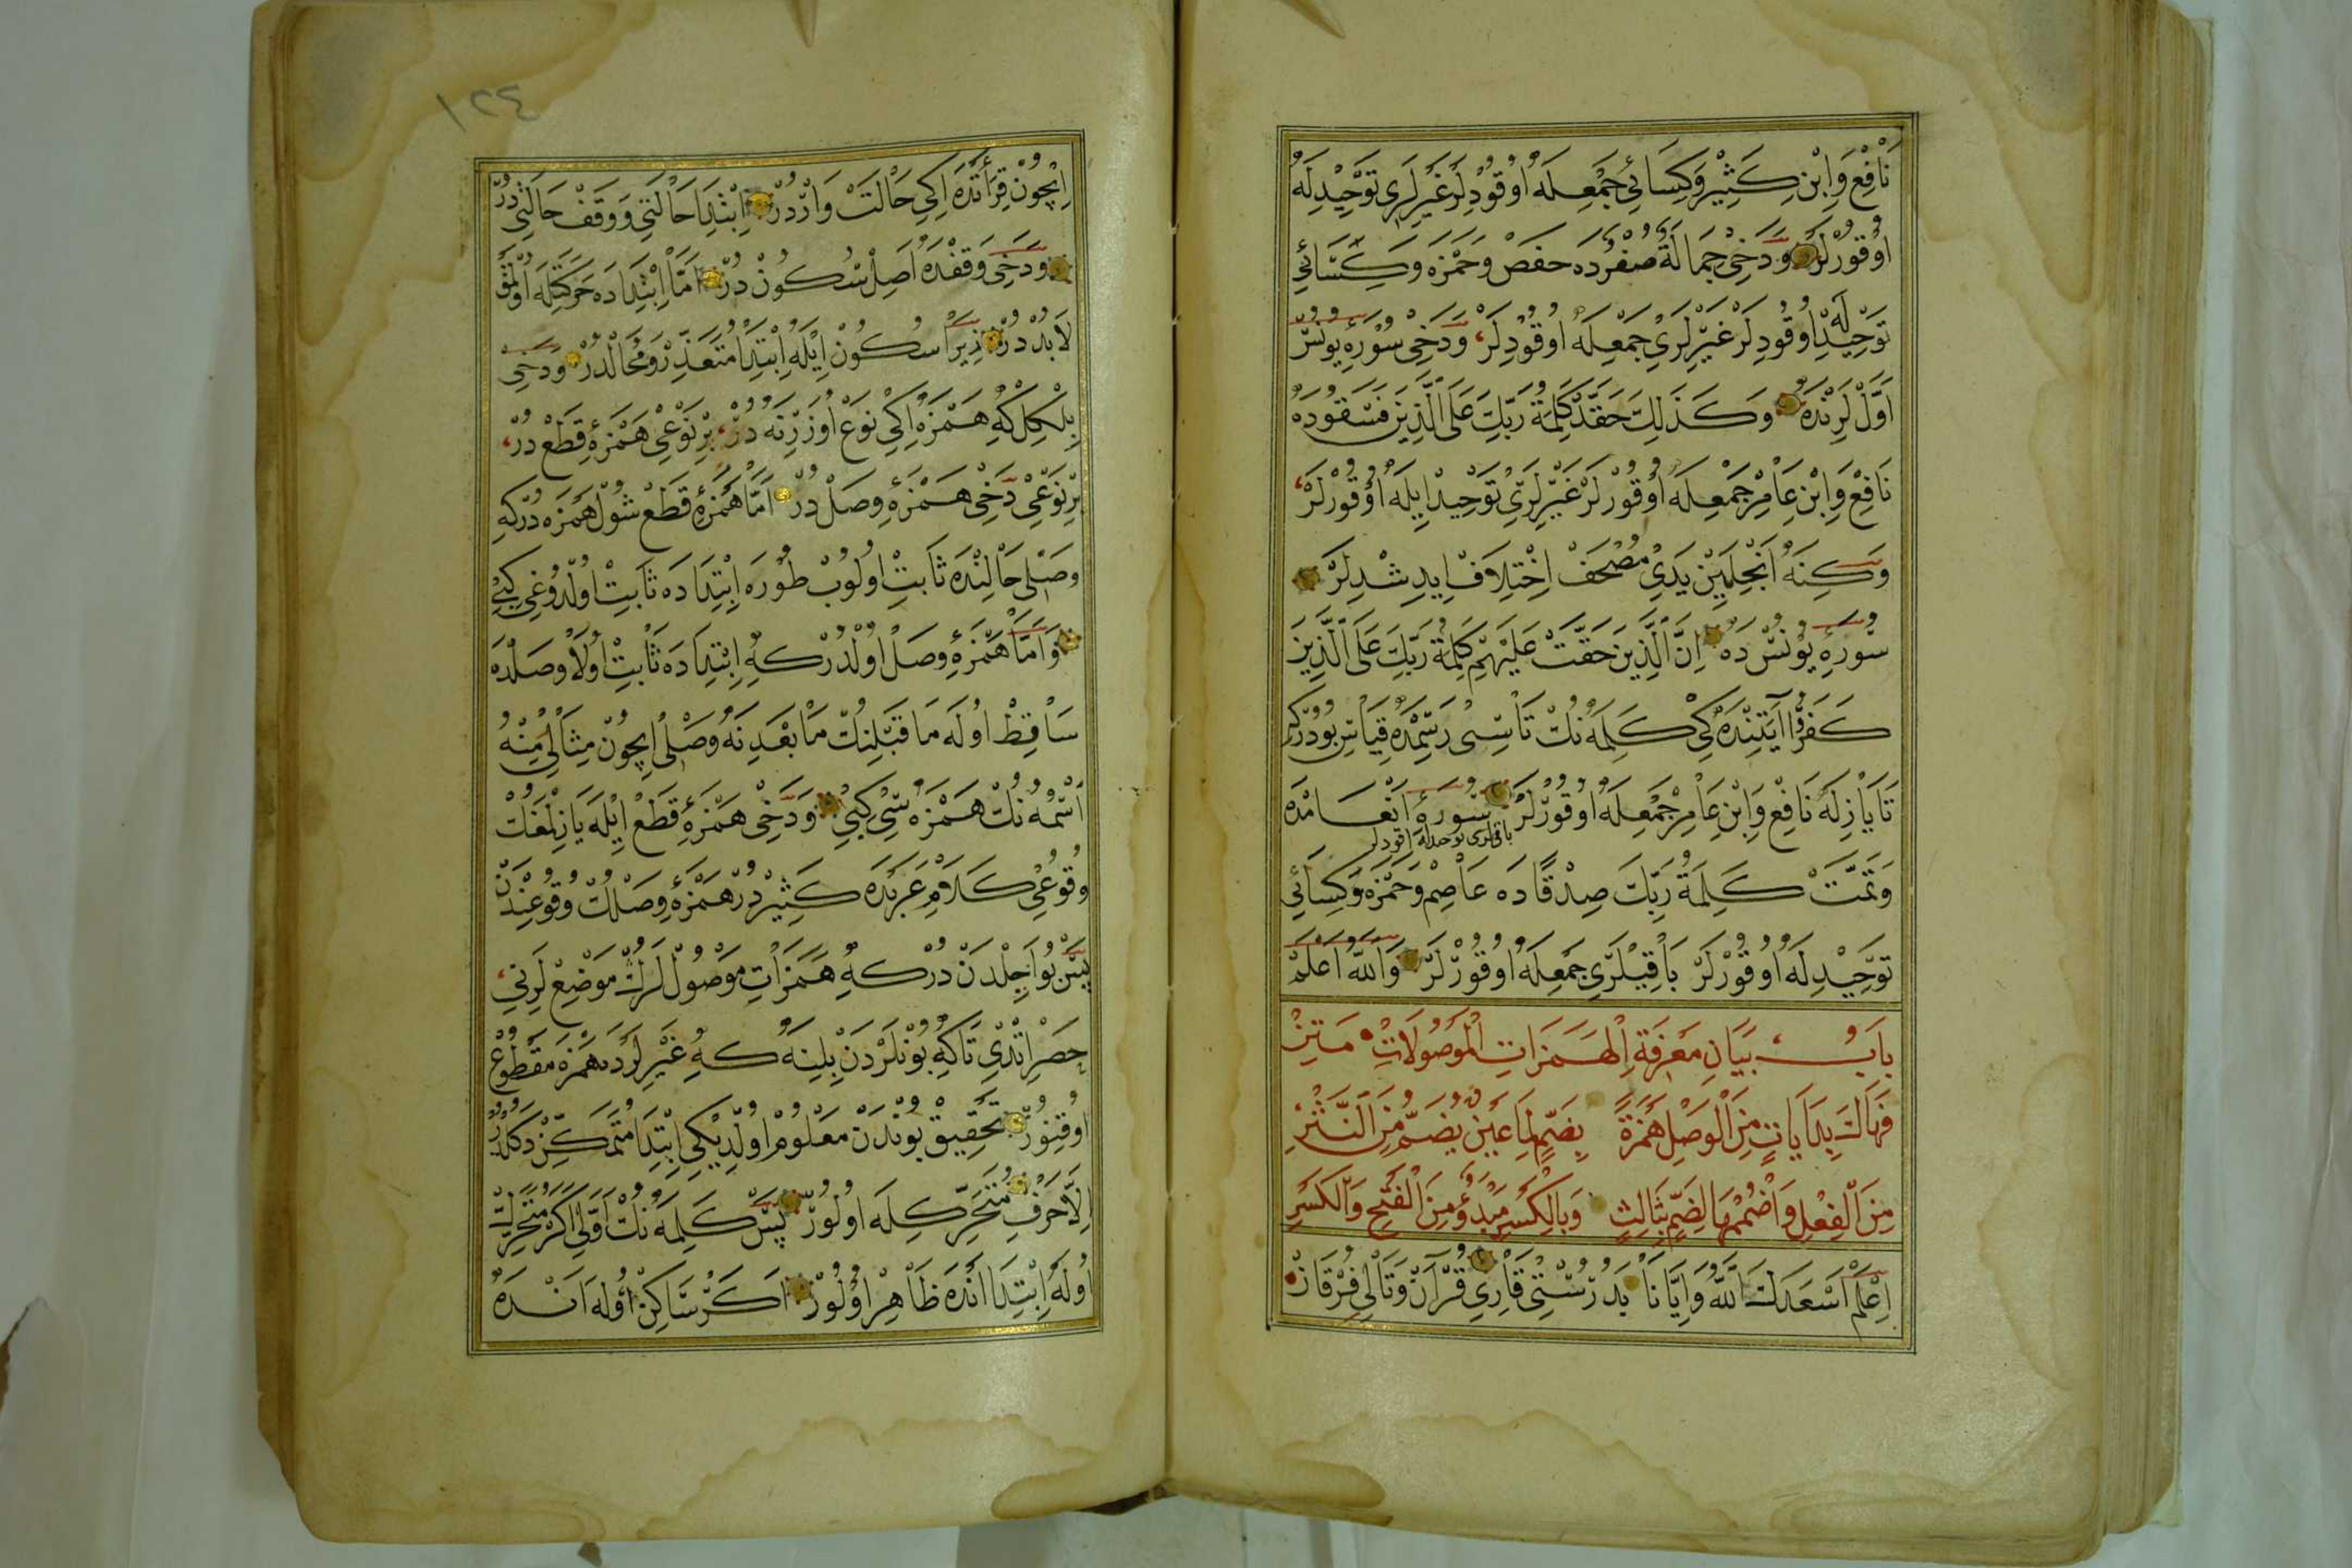 نَافِعْ وَاِبْنِ كَثِيْر وَكِسَائِي جَمْعِلَه اُوقُودِلَرْ غَيْرِلَرِى تَوْحِيْدِلَه
اُوقُورْلَرْ وَدَخِى جِمَالَةٌ صُفْرُدَه حَفَصْ وَحَمْزَه وَكِسَائِي
تَوْحِيْدِلَه اُوقُودِلَرْ غَيْرِلَرِى جَمْعِلَه اُوقُودِلَرْ، وَدَخِى سُوْرَهِٔ يُونُسْ
اَوَّلْلَرِنْدَه وَكَذَلِكَ حَقَّتْ كَلِمَةُ رَبِّكَ عَلَى الَّذِيْنَ فَسَقُودَه
نَافِعْ وَاِبْنِ عَامِرْ جَمْعِلَه اُوقُورْلَرْ غَيْرِلَرِى تَوْحِيْد اِيلَه اُوقُورْلَرْ،
وَكِنَه اَنْجِلَيِيْن يَدِى مُصْحَفْ اِخْتِلَافْ اِيدِشْدِلَرْ
سُورَهِٔ يُونُسْ دَه اِنَّ الَّذِيْنَ حَقَّتْ عَلَيْهِمْ كَلِمَةُ رَبِّكَ عَلَى الَّذِيْنَ
كَفَرُوا آيَتِنْدَه كِى كَلِمَه نُكْ تَاسِى رَسْمِدَه قِيَاسِ بُودُرْكِه
تَا يَازِلَه نَافِعْ وَاِبْنِ عَامِرْ جَمْعِلَه اُوقُورْلَرْ سُورَهِٔ اَنْعَامْدَه
باقيلرى توحيدله اوقودلر
وَتَمَّتْ كَلِمَةُ رَبِّكَ صِدْقًا دَه عَاصِمْ وَحَمْزَه وَكِسَائِي
تَوْحِيْدِلَه اُوقُورْلَرْ بَاقِيْلَرِى جَمْعِلَه اُوقُورْلَرْ وَاللّٰهُ اَعْلَمْ
بابُ بَيَانِ مَعْرِفَةِ الْهَمَزَاتِ الْمَوْصُولَاتِ مَتِنْ
فَهَاكَ بِدَايَاتٍ مِنَ الْوَصْلِ هَمْزَةً بِضَمٍّ لِمَا عَيْنٌ يُضَمُّ مِنَ النَّثْرِ
مِنَ الْفِعْلِ وَاضْمُمْهَا لِضَمٍّ بِثَالِثٍ وَبِالْكَسْرِ مَبْدُؤٌ مِنَ الْفَتْحِ وَالْكَسْرِ
اِعْلَمْ اَسْعَدَكَ اللّٰهُ وَاِيَّانَا بَدُرُسْتِى قَارِىِ قُرْآنْ وَتَالِىِ فُرْقَانْ
١٢٤
اِيچُونْ قِرَأَتْدَه اِكِى حَالَتْ وَارْدُرْ اِبْتِدَا حَالَتِى وَ وَقَفْ حَالَتِى دُرْ
وَدَخِى وَقْفْدَه اَصِلْ سُكُونْ دُرْ اَمَّا اِبْتِدَادَه حَرَكَتِلَه اُولْمَقْ
لَابُدْ دُرْ زِيْرَا سُكُونْ اِيْلَه اِبْتِدَا مُتَعَذِّرْ وَمُحَالْدُرْ وَدَخِى
بِلْكِلْ كِه هَمْزَه اِكِى نَوْعْ اُوْزَرِنَه دُرْ، بِرْ نَوْعِى هَمْزَهِٔ قَطْع دُرْ،
بِرْ نَوْعِى دَخِى هَمْزَهِٔ وَصَلْ دُرْ اَمَّا هَمْزَهِٔ قَطْع شُولْ هَمْزَه دُرْكِه
وَصْلِ حَالِنْدَه ثَابِتْ اُولُوبْ طُورَه اِبْتِدَادَه ثَابِتْ اُولْدُوغِى كِيبِى
وَاَمَّا هَمْزَهِٔ وَصَلْ اُولْدُرْكِه اِبْتِدَادَه ثَابِتْ اُولَا وَصَلْدَه
سَاقِطْ اُولَه مَا قَبْلِنِكْ مَا بَعْدِنَه وَصْلِى اِيچُونْ مِثَالِى مِنْهُ
اَسْمُهُ نُكْ هَمْزَه سِى كِبِى وَدَخِى هَمْزَهِٔ قَطْع اِيْلَه يَازِلْمَغُكْ
وُقُوعِى كَلَامِ عَرَبْدَه كَثِيْرْدُرْ هَمْزَهِٔ وَصَلْكْ وُقُوعِنْدَنْ
پَسْ بُو اَجِلْدَنْ دُرْكِه هَمَزَاتِ مَوْصُولْلَرِكْ مَوْضِعْلَرِنِى،
حَصْرِ اتْدِى تَاكِه بُونْلَرْدَنْ بِلِنَه كِه غَيْرِلَرْدَه هَمْزَه مَقْطُوعْ
اُوقِنُورْ تَحْقِيقْ بُونْدَنْ مَعْلُومْ اُولْدِيكِى اِبْتِدَا مُتَمَكِّنْ دَكُلْدُرْ
اِلَّا حَرْفِ مُتَحَرِّكِلَه اُولُورْ پَسْ كَلِمَه نُكْ اَوَّلِى اَكَرْ مُتَحَرِّكْ
اُولَه اِبْتِدَا اَنْدَه ظَاهِرْ اُولُورْ اَكَرْ سَاكِنْ اُولَه اَنْدَه